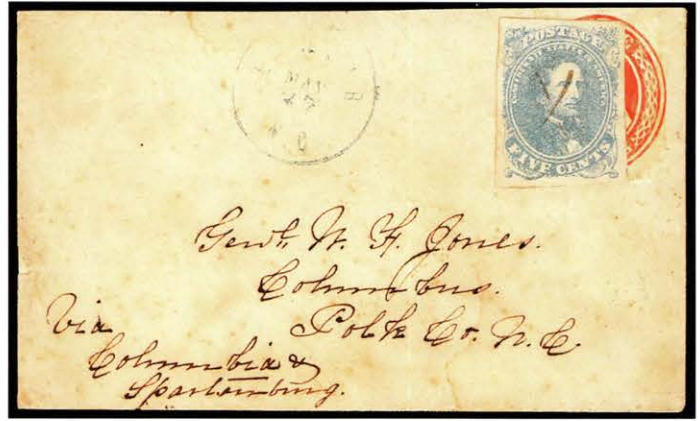 POSTAGE
CONFEDERATE STATES OF AMERICA
FIVE CENTS
MAY
Genl. W. F. Jones.
Columbus.
Polk Co. N. C.
Via
Columbia &
Spartanburg.